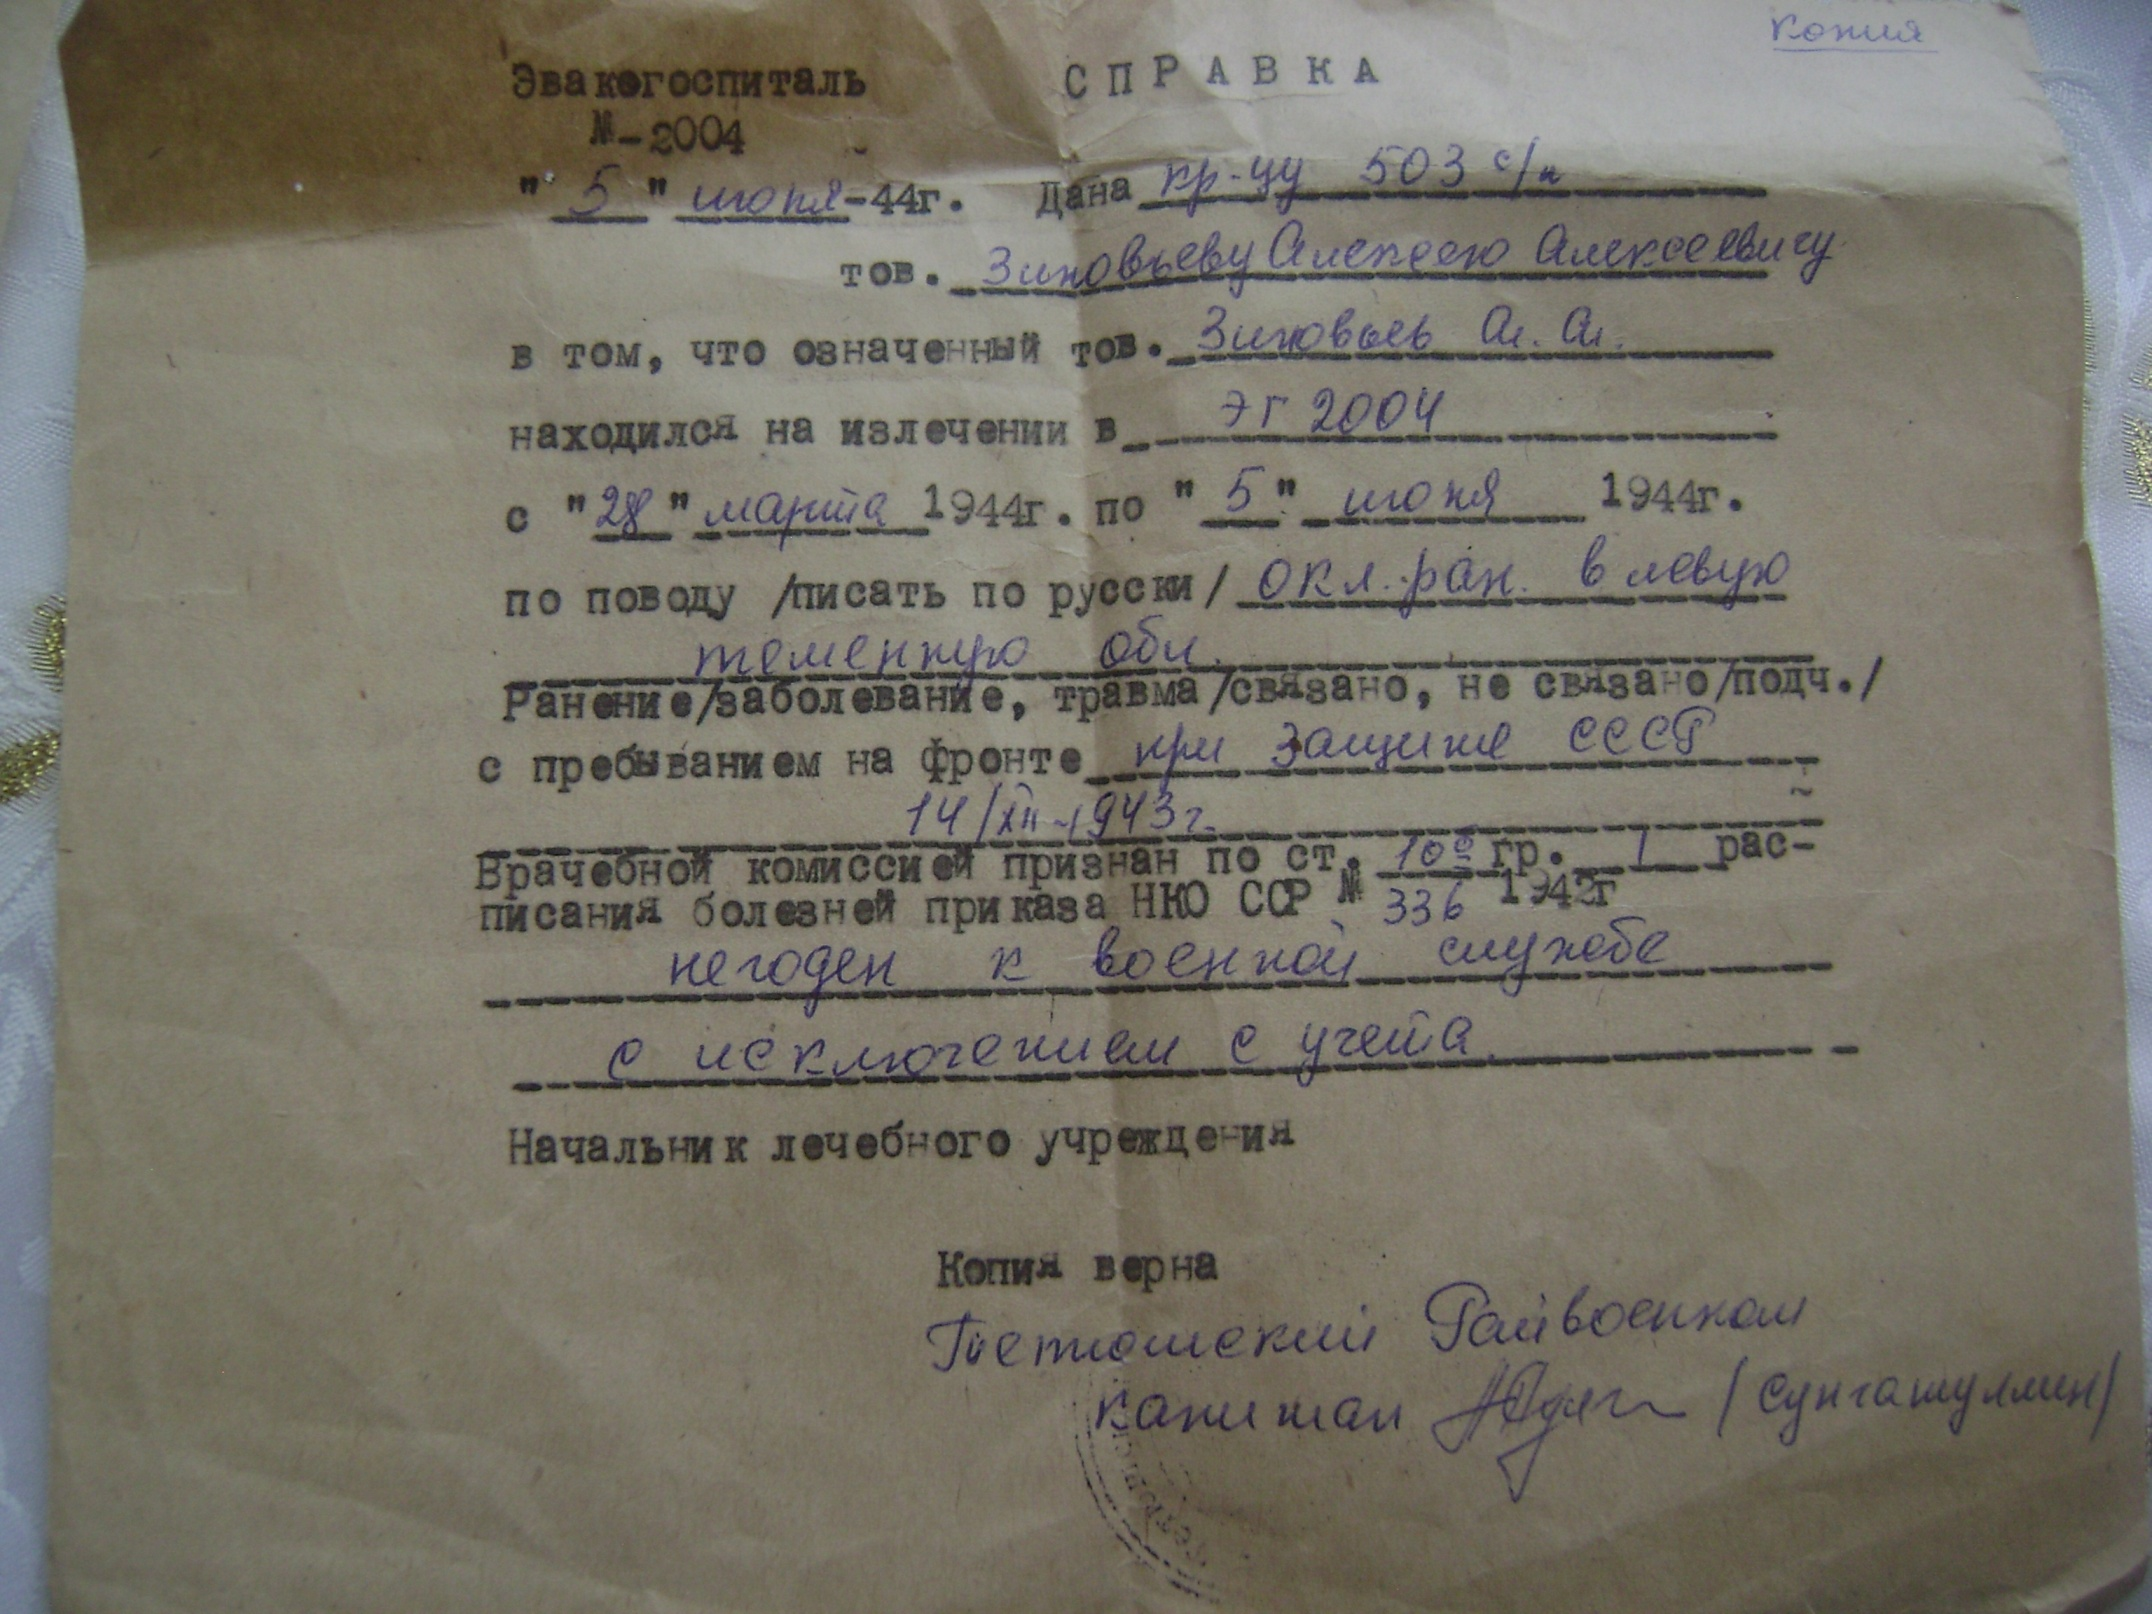 копия
Эвакогоспиталь СПРАВКА
№-2004
"5" июня-44г. Дана кр-цу 503 с/п
тов. Зиновьеву Алексею Алексеевичу
в том, что означенный тов. Зиновьев А. А.
находился на излечении в ЭГ 2004
с "28" марта 1944г. по "5" июня 1944г.
по поводу /писать по русски/ окл. ран. в левую
теменную обл.
Ранение/заболевание, травма/связано, не связано/подч./
с пребыванием на фронте при защите СССР
14/XII-1943г.
Врачебной комиссией признан по ст. гр. I рас-
писания болезней приказа НКО ССР № 336 1942г
негоден к военной службе
с исключением с учета.
Начальник лечебного учреждения
Копия верна
Тетюшский Райвоенком
капитан /Сунгатуллин/